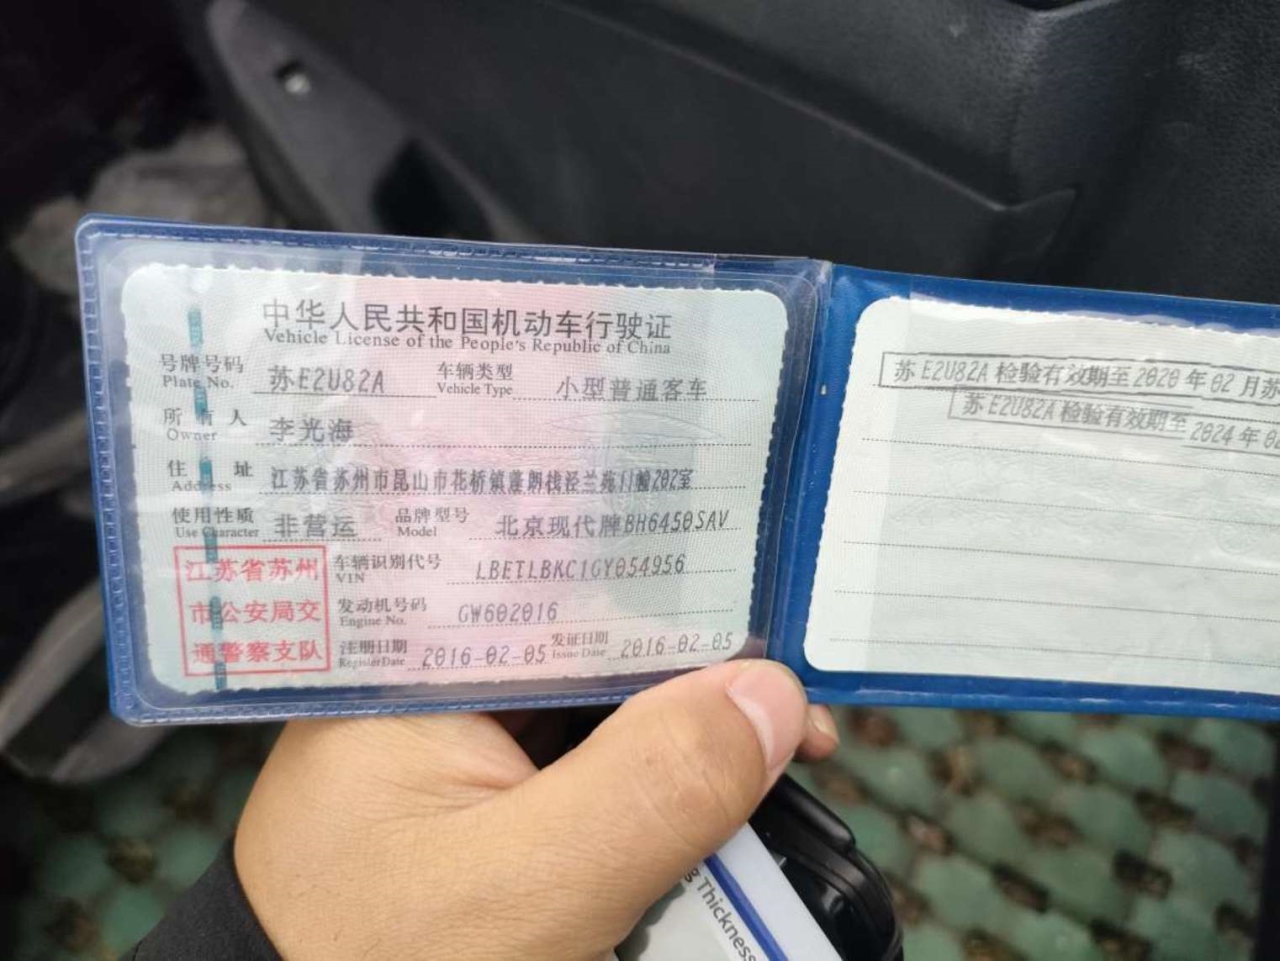 中华人民共和国机动车行驶证
Vehicle License of the People's Republic of China
号牌号码 苏E2U82A 车辆类型 小型普通客车
Plate No. Vehicle Type
所有人 李光海
Owner
住址 江苏省苏州市昆山市花桥镇蓬朗栈泾兰苑11幢202室
Address
使用性质 非营运 品牌型号 北京现代牌BH6450SAV
Use Character Model
江苏省苏州
市公安局交
通警察支队
车辆识别代号 LBETLBKC1GY054956
VIN
发动机号码 GW602016
Engine No.
注册日期 2016-02-05 发证日期 2016-02-05
Register Date Issue Date
苏E2U82A检验有效期至2020年02月苏
苏E2U82A检验有效期至2024年0
Thickness